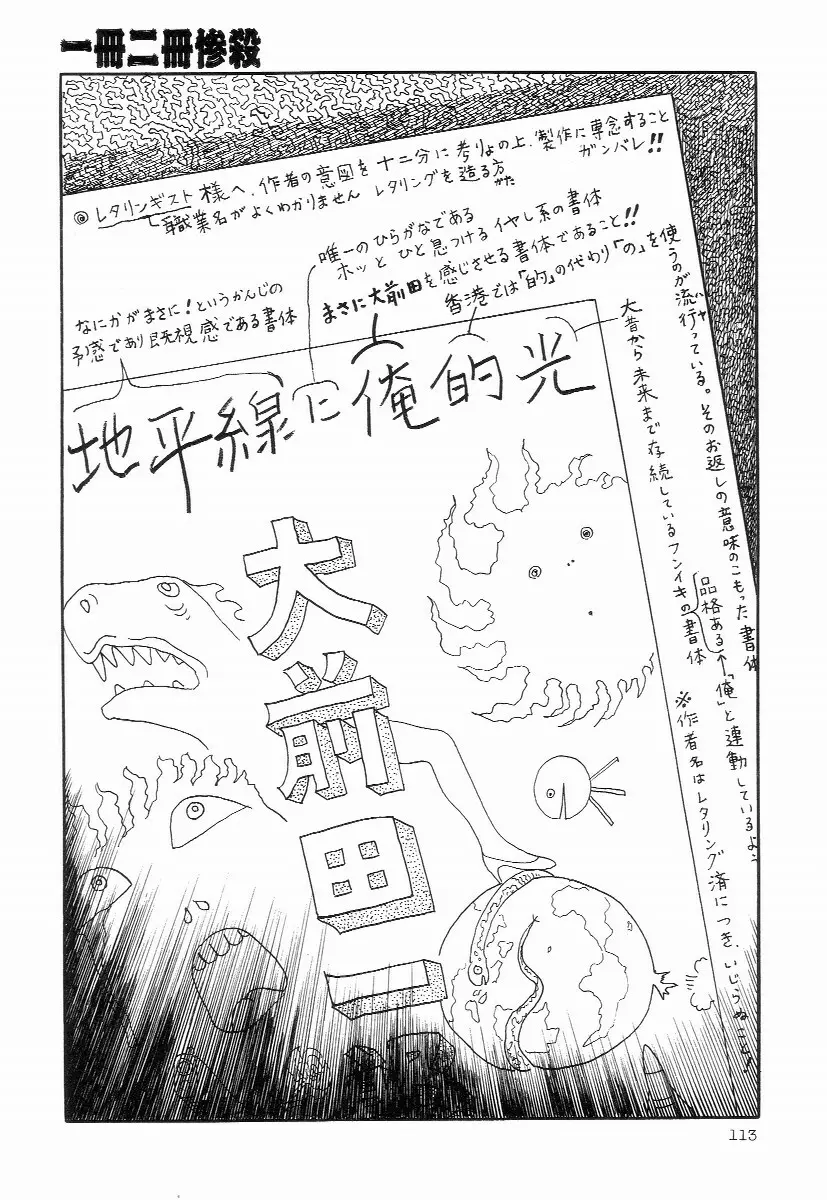 一冊二冊惨殺
◎レタリンギスト様へ、作者の意図を十二分に考りょの上、製作に専念すること
ガンバレ!!
職業名がよくわかりません レタリングを造る方
かた
唯一のひらがなである
ホッとひと息つけるイヤし系の書体
なにかがまさに!というかんじの
予感であり既視感である書体
まさに大前田を感じさせる書体であること!!
香港では「的」の代わり「の」を使うのが流行っている。そのお返しの意味のこもった書体
ハヤ
大昔から未来まで存続しているフンイキの書体
品格ある←「俺」と連動しているよ
※作者名はレタリング済につき、いじらぬこと
地平線に俺的光
大前田一
113